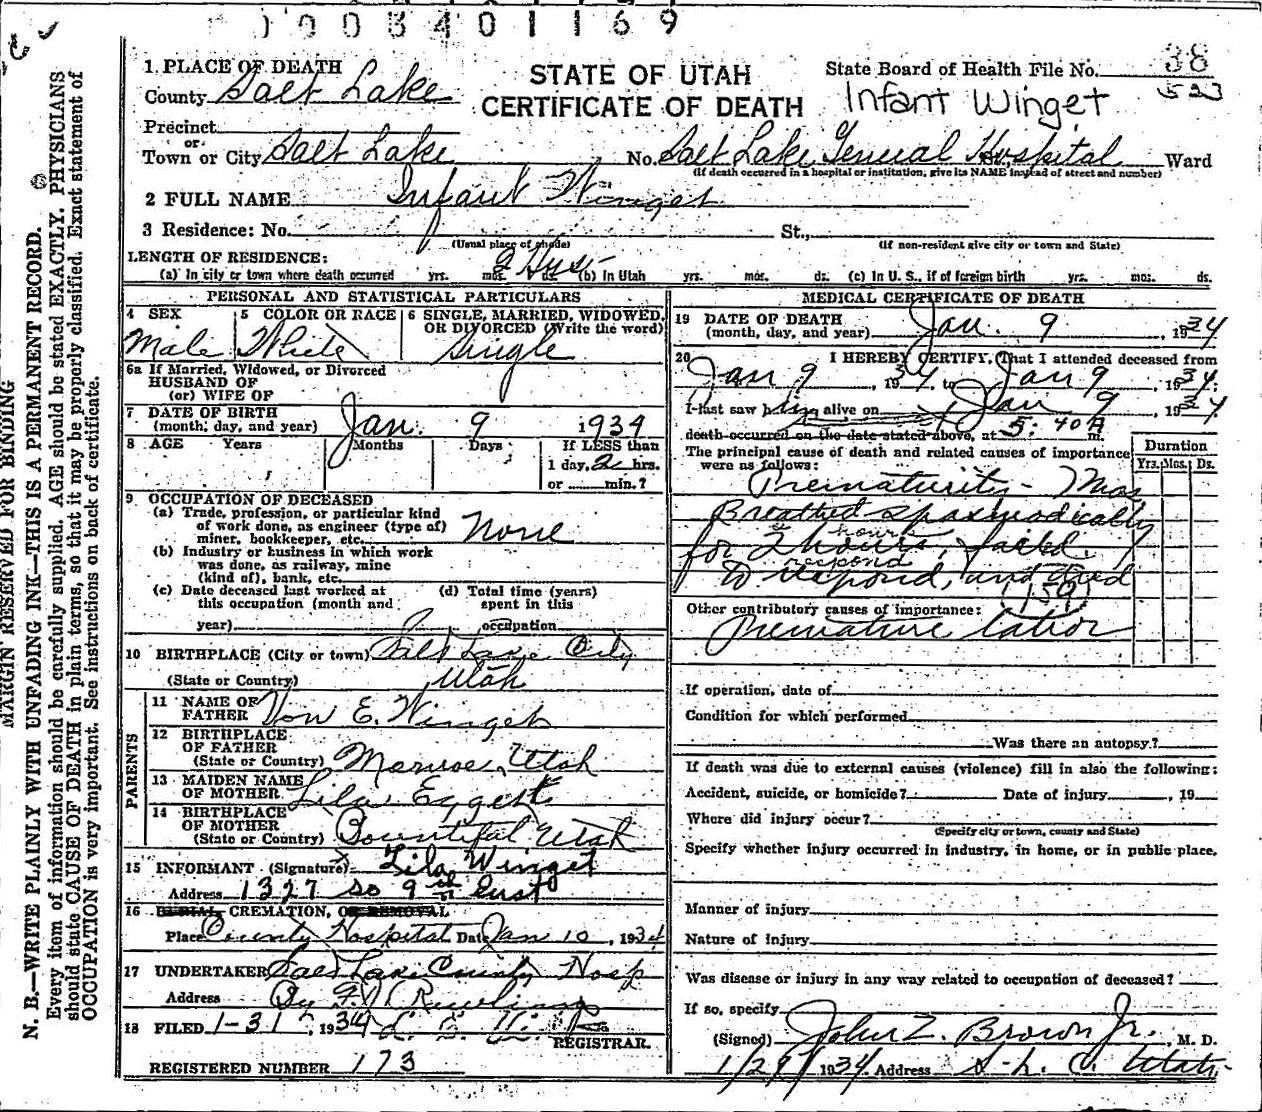 0003401169
1 PLACE OF DEATH
STATE OF UTAH
CERTIFICATE OF DEATH
State Board of Health File No. 38
523
County Salt Lake
Infant Winget
Precinct
or
Town or City Salt Lake No. Salt Lake General Hospital Ward
(If death occurred in a hospital or institution, give its NAME instead of street and number)
2 FULL NAME Infant Winget
3 Residence: No. St.,
(Usual place of abode) (If non-resident give city or town and State)
LENGTH OF RESIDENCE:
(a) In city or town where death occurred yrs. mos. 2 Hrs. ds. (b) In Utah yrs. mos. ds. (c) In U. S., if of foreign birth yrs. mos. ds.
PERSONAL AND STATISTICAL PARTICULARS
4 SEX 5 COLOR OR RACE 6 SINGLE, MARRIED, WIDOWED, OR DIVORCED (Write the word)
Male White Single
6a If Married, Widowed, or Divorced
HUSBAND OF
(or) WIFE OF
7 DATE OF BIRTH
(month, day, and year) Jan. 9 1934
8 AGE Years Months Days If LESS than
1 day, 2 hrs.
or min.?
9 OCCUPATION OF DECEASED
(a) Trade, profession, or particular kind
of work done, as engineer (type of)
miner, bookkeeper, etc. None
(b) Industry or business in which work
was done, as railway, mine
(kind of), bank, etc.
(c) Date deceased last worked at
this occupation (month and
year)
(d) Total time (years)
spent in this
occupation
10 BIRTHPLACE (City or town) Salt Lake City
(State or Country) Utah
PARENTS
11 NAME OF
FATHER Von E. Winget
12 BIRTHPLACE
OF FATHER
(State or Country) Monroe, Utah
13 MAIDEN NAME
OF MOTHER Lila Eggett
14 BIRTHPLACE
OF MOTHER
(State or Country) Bountiful Utah
15 INFORMANT (Signature) x Lila Winget
Address 1327 So 9th East
16 BURIAL CREMATION, OR REMOVAL
Place County Hospital Date Jan 10, 1934
17 UNDERTAKER Salt Lake County Hosp
Address By
18 FILED 1-31, 1934
REGISTRAR.
REGISTERED NUMBER 173
MEDICAL CERTIFICATE OF DEATH
19 DATE OF DEATH
(month, day, and year) Jan. 9, 1934
20 I HEREBY CERTIFY, That I attended deceased from
Jan 9, 1934, to Jan 9, 1934:
I last saw him alive on Jan 9, 1934
death occurred on the date stated above, at 5:40A m.
The principal cause of death and related causes of importance
were as follows:
Duration
Yrs. Mos. Ds.
Prematurity - 7 mos
Breathed spasmodically
hours
for 2 hours, failed
respond
to respond, and died
159
Other contributory causes of importance:
Premature labor
If operation, date of
Condition for which performed
Was there an autopsy?
If death was due to external causes (violence) fill in also the following:
Accident, suicide, or homicide? Date of injury, 19
Where did injury occur?
(Specify city or town, county and State)
Specify whether injury occurred in industry, in home, or in public place.
Manner of injury
Nature of injury
Was disease or injury in any way related to occupation of deceased?
If so, specify
(Signed) John Z. Brown Jr., M. D.
1/29/1934 Address S. L. C. Utah
MARGIN RESERVED FOR BINDING
N. B.—WRITE PLAINLY WITH UNFADING INK—THIS IS A PERMANENT RECORD.
Every item of information should be carefully supplied. AGE should be stated EXACTLY. PHYSICIANS
should state CAUSE OF DEATH in plain terms, so that it may be properly classified. Exact statement of
OCCUPATION is very important. See instructions on back of certificate.